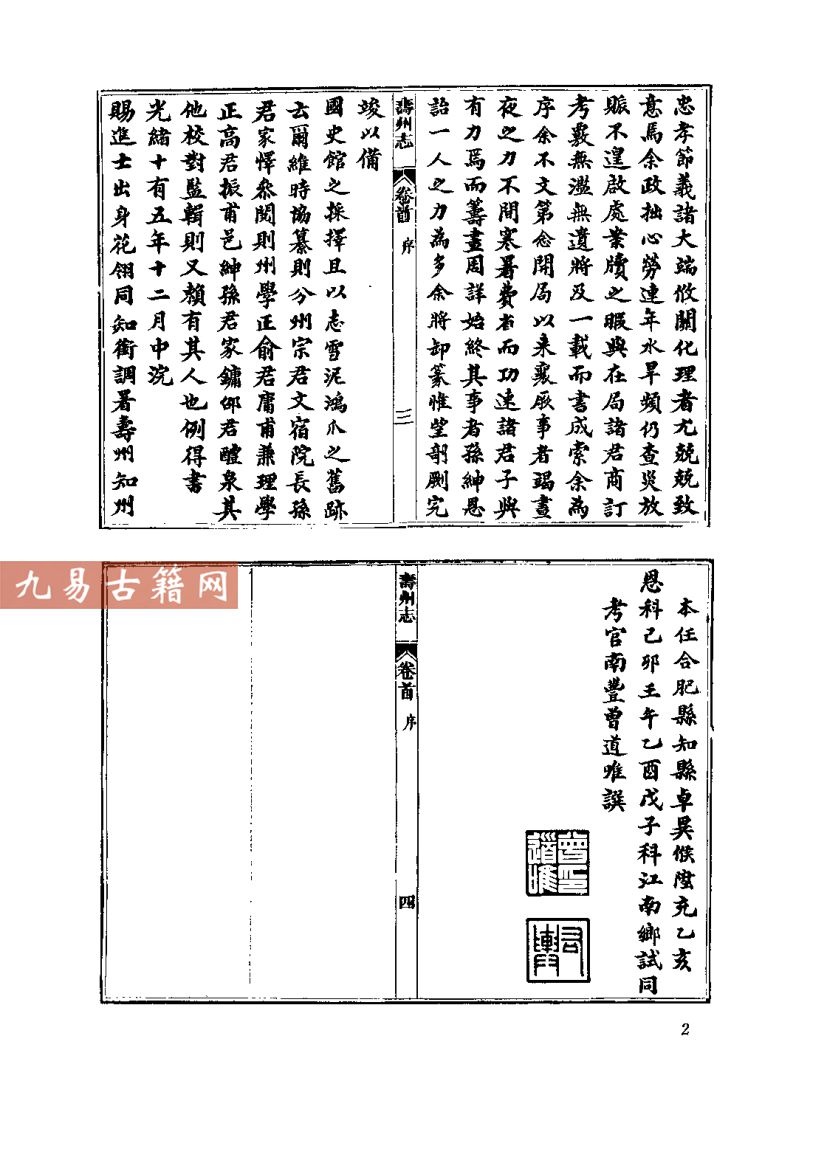 忠孝節義諸大端攸關化理者尤兢兢致
意焉余政拙心勞連年水旱頻仍查災放
賑不遑啟處案牘之暇與在局諸君商訂
考覈無濫無遺將及一載而書成索余為
序余不文第念開局以來襄厥事者竭晝
夜之力不間寒暑費省而功速諸君子與
有力焉而籌畫周詳始終其事者孫紳恩
詒一人之力為多余將卸篆惟望剞劂完
壽州志 卷首 序 三
竣以備
國史館之採擇且以志雪泥鴻爪之舊跡
云爾維時協纂則分州宗君文宿院長孫
君家懌參閱則州學正俞君庸甫兼理學
正高君振甫邑紳孫君家鏞邵君醴泉其
他校對監輯則又賴有其人也例得書
光緒十有五年十二月中浣
賜進士出身花翎同知銜調署壽州知州
本任合肥縣知縣卓異候陞充乙亥
恩科己卯壬午乙酉戊子科江南鄉試同
考官南豐曾道唯譔
曾印道唯
君輿
壽州志 卷首 序 四
九易古籍网
2